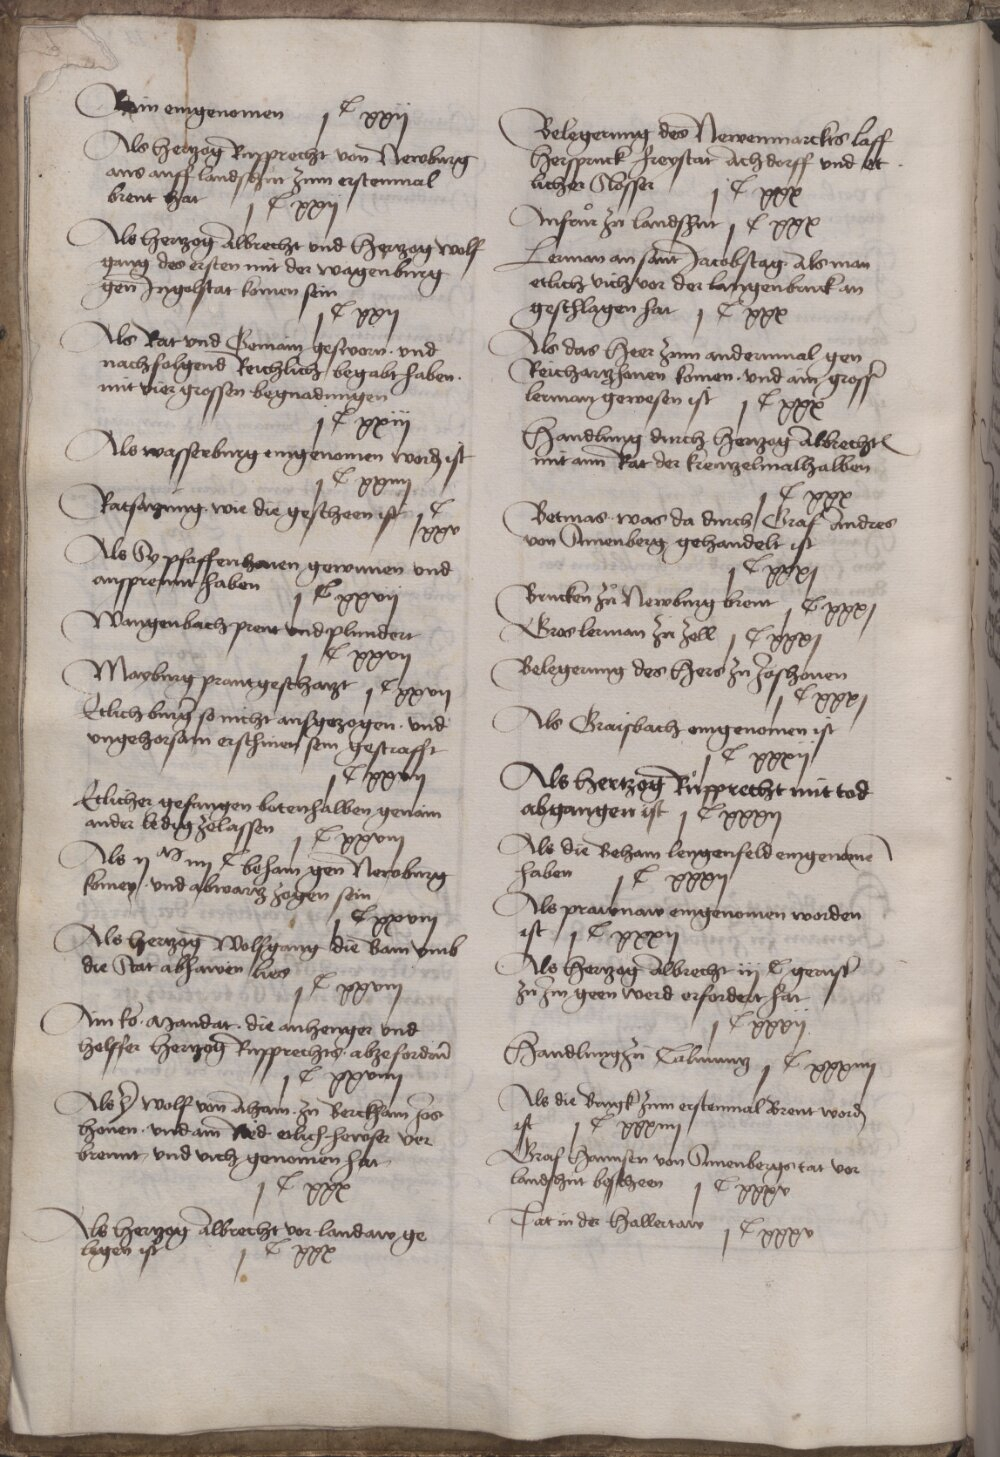 Rain eingenomen j C xxij
Als Hertzog Rupprecht von Newburg
aus auff landshut zum erstenmal
brent hat j C xxij
Als Hertzog Albrecht und Hertzog Wolf
gang des ersten mit der wagenburg
gen Ingolstat komen sein
j C xxij
Als Rat und Gemain gesworn und
nachfolgend Reichlich begabt haben
mit vier grossen begnadungen
j C xxiij
Als wasserburg eingenomen word ist
j C xxiiij
Ratsatzung wie die gescheen ist j C
xxv
Als Sy pfaffenhouen gewunen und
ausprennt haben j C xxvij
Wangenbach prent und plundert
j C xxvij
Mayburg prantgeschatzt j C xxvij
Etlich burg so nicht ausgezogen und
ungehorsam erschinen sein gestrafft
j C xxvij
Etlicher gefangen botenhalben genain
ander ledig zelassen j C xxviij
Als ij M iiij C beham gen Newburg
komen und abwartz zogen sein
j C xxviij
Als Hertzog Wolfgang die bam umb
die Stat abhawen lies
j C xxviij
Ain ko. Mandat die anhenger und
helffer Hertzog Rupprechts abzefordern
j C xxviiij
Als wolf von Aham zu berckham Jos
houen und am Ried etlich hewser ver
brennt und vich genomen hat
j C xxx
Als Hertzog Albrecht vor landaw ge
legen ist j C xxx
Belegerung des Newenmarckts lauff
Herspruck Freystat Achdorff und et
licher Slosser j C xxx
Aufrur zu landshut j C xxx
Lerman an sant Jacobstag als man
etlich vich vor der langenbruck an
geschlagen hat j C xxx
Als das Heer zum andernmal gen
Reichartzhouen komen und ain grosser
lerman gewesen ist j C xxx
Handlung durch Hertzog Albrecht
mit aim Rat der kreuzelmalhalben
j C xxx
Vetmas was da durch Graf Andres
von Sunenberg gehandelt ist
j C xxxj
Brucken zu Newburg brent j C xxxj
Gros lerman zu Zell j C xxxj
Belegerung des Hers zu Joshouen
j C xxxj
Als Graisbach eingenomen ist
j C xxxij
Als Hertzog Rupprecht mit tod
abgangen ist j C xxxij
Als die Beham lengenfeld eingenomen
haben j C xxxij
Als prawnaw eingenomen worden
ist j C xxxij
Als Hertzog Albrecht iij C gerust
zu Im geen werd erfordert hat
j C xxxvij
Handlung zu Calmuntz j C xxxiiij
Als die Vangk zum erstenmal Brent word
ist j C xxxiiij
Graf Hannsen von Sunenbergs tat vor
landshut bescheen j C xxxv
Tat in der Hallertaw j C xxxv